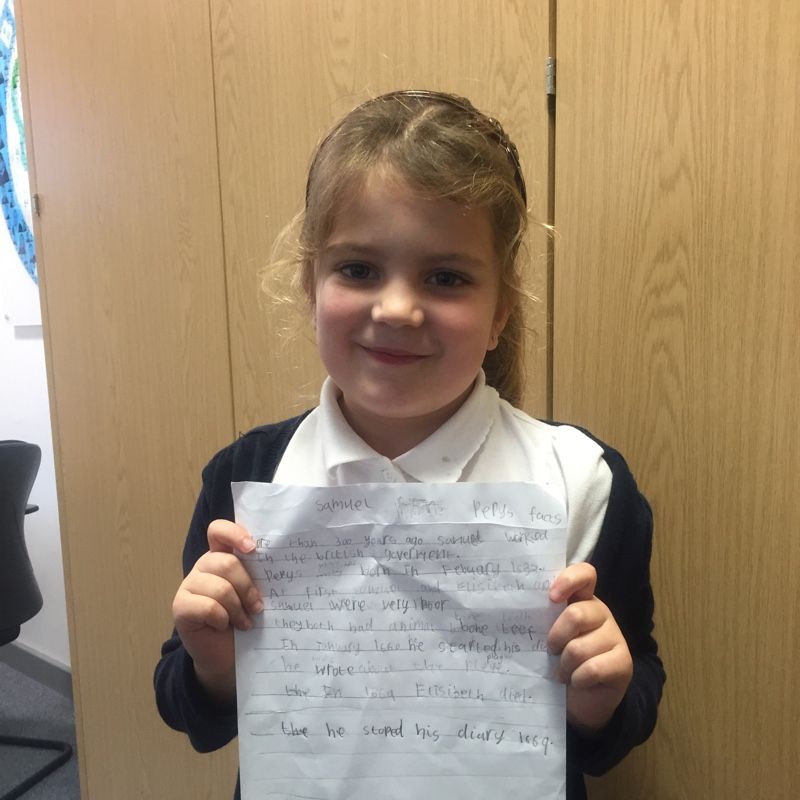 Samuel Pepys facts
than 300 years ago Samuel worked
in the british government.
Pepys was born in Febuary 1633.
At first and Elisibeth and
Samuel were very Poor
they both had animal bone teef
In January 1660 he started his
he wrote about the
the In 1669 Elisibeth died.
the he stoped his diary 1669.